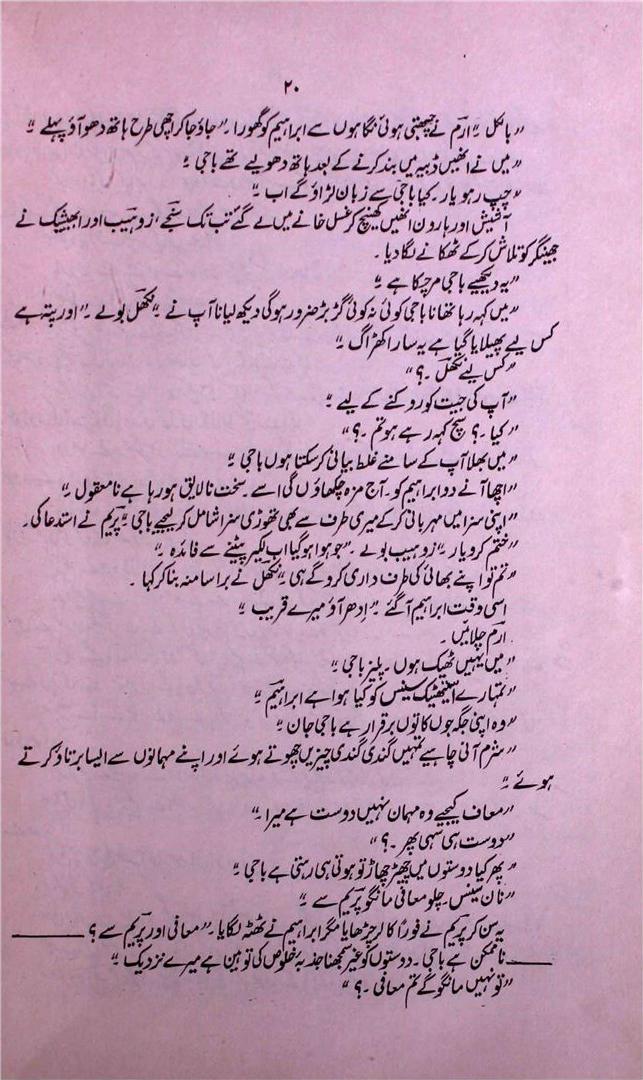 ۲۰
"بالکل۔" ارم نے چبھتی ہوئی نگاہوں سے ابراہیم کو گھورا۔ "جاؤ جاکر اچھی طرح ہاتھ دھو آؤ پہلے۔"
"میں نے انھیں ڈبیہ میں بند کرنے کے بعد ہاتھ دھویے تھے باجی۔"
"چپ رہو یار۔ کیا باجی سے زبان لڑاؤ گے اب۔"
آشیش اور ہارون انھیں کھینچ کر غسل خانے میں لے گئے تب تک سنجے، زوہیب اور ابھیشیک نے
جھینگر کو تلاش کر کے ٹھکانے لگا دیا۔
"یہ دیکھیے باجی مر چکا ہے۔"
"میں کہہ رہا تھا نا باجی کوئی نہ کوئی گڑبڑ ضرور ہوگی دیکھ لیا نا آپ نے۔" نکھل بولے۔ "اور پتہ ہے
کس لیے پھیلایا گیا ہے یہ سارا کھڑاگ۔"
"کس لیے نکھل۔؟"
"آپ کی جیت کو روکنے کے لیے۔"
"کیا۔؟ سچ کہہ رہے ہو تم۔؟"
"میں بھلا آپ کے سامنے غلط بیانی کر سکتا ہوں باجی۔"
"اچھا آنے دو ابراہیم کو۔ آج مزہ چکھاؤں گی اسے۔ سخت نالایق ہو رہا ہے نامعقول۔"
"اپنی سزا میں مہربانی کر کے میری طرف سے بھی تھوڑی سزا شامل کر لیجیے باجی۔" پریم نے استدعا کی۔
"ختم کرو یار۔" زوہیب بولے۔ "جو ہوا ہو گیا اب لکیر پیٹنے سے فائدہ۔"
"تم تو اپنے بھائی کی طرف داری کرو گے ہی۔" نکھل نے برا سا منہ بنا کر کہا۔
اسی وقت ابراہیم آگئے۔ "اِدھر آؤ میرے قریب۔"
ارم چلائیں۔
"میں یہیں ٹھیک ہوں۔ پلیز باجی۔"
"تمہارے ایستھیٹک سینس کو کیا ہوا ہے ابراہیم۔"
"وہ اپنی جگہ جوں کا توں برقرار ہے باجی جان۔"
"شرم آنی چاہیے تمہیں گندی گندی چیزیں چھوتے ہوئے اور اپنے مہمانوں سے ایسا برتاؤ کرتے
ہوئے۔"
"معاف کیجیے وہ مہمان نہیں دوست ہے میرا۔"
"دوست ہی سہی پھر۔؟"
"پھر کیا دوستوں میں چھیڑ چھاڑ تو ہوتی ہی رہتی ہے باجی۔"
"نان سینس۔ چلو معافی مانگو پریم سے۔"
یہ سن کر پریم نے فوراً کالر چڑھایا مگر ابراہیم نے ٹھٹہ لگایا۔ "معافی اور پریم سے؟ ——
—— ناممکن ہے باجی۔ دوستوں کو غیر سمجھنا جذبہ خلوص کی توہین ہے میرے نزدیک۔"
"تو نہیں مانگو گے تم معافی۔؟"